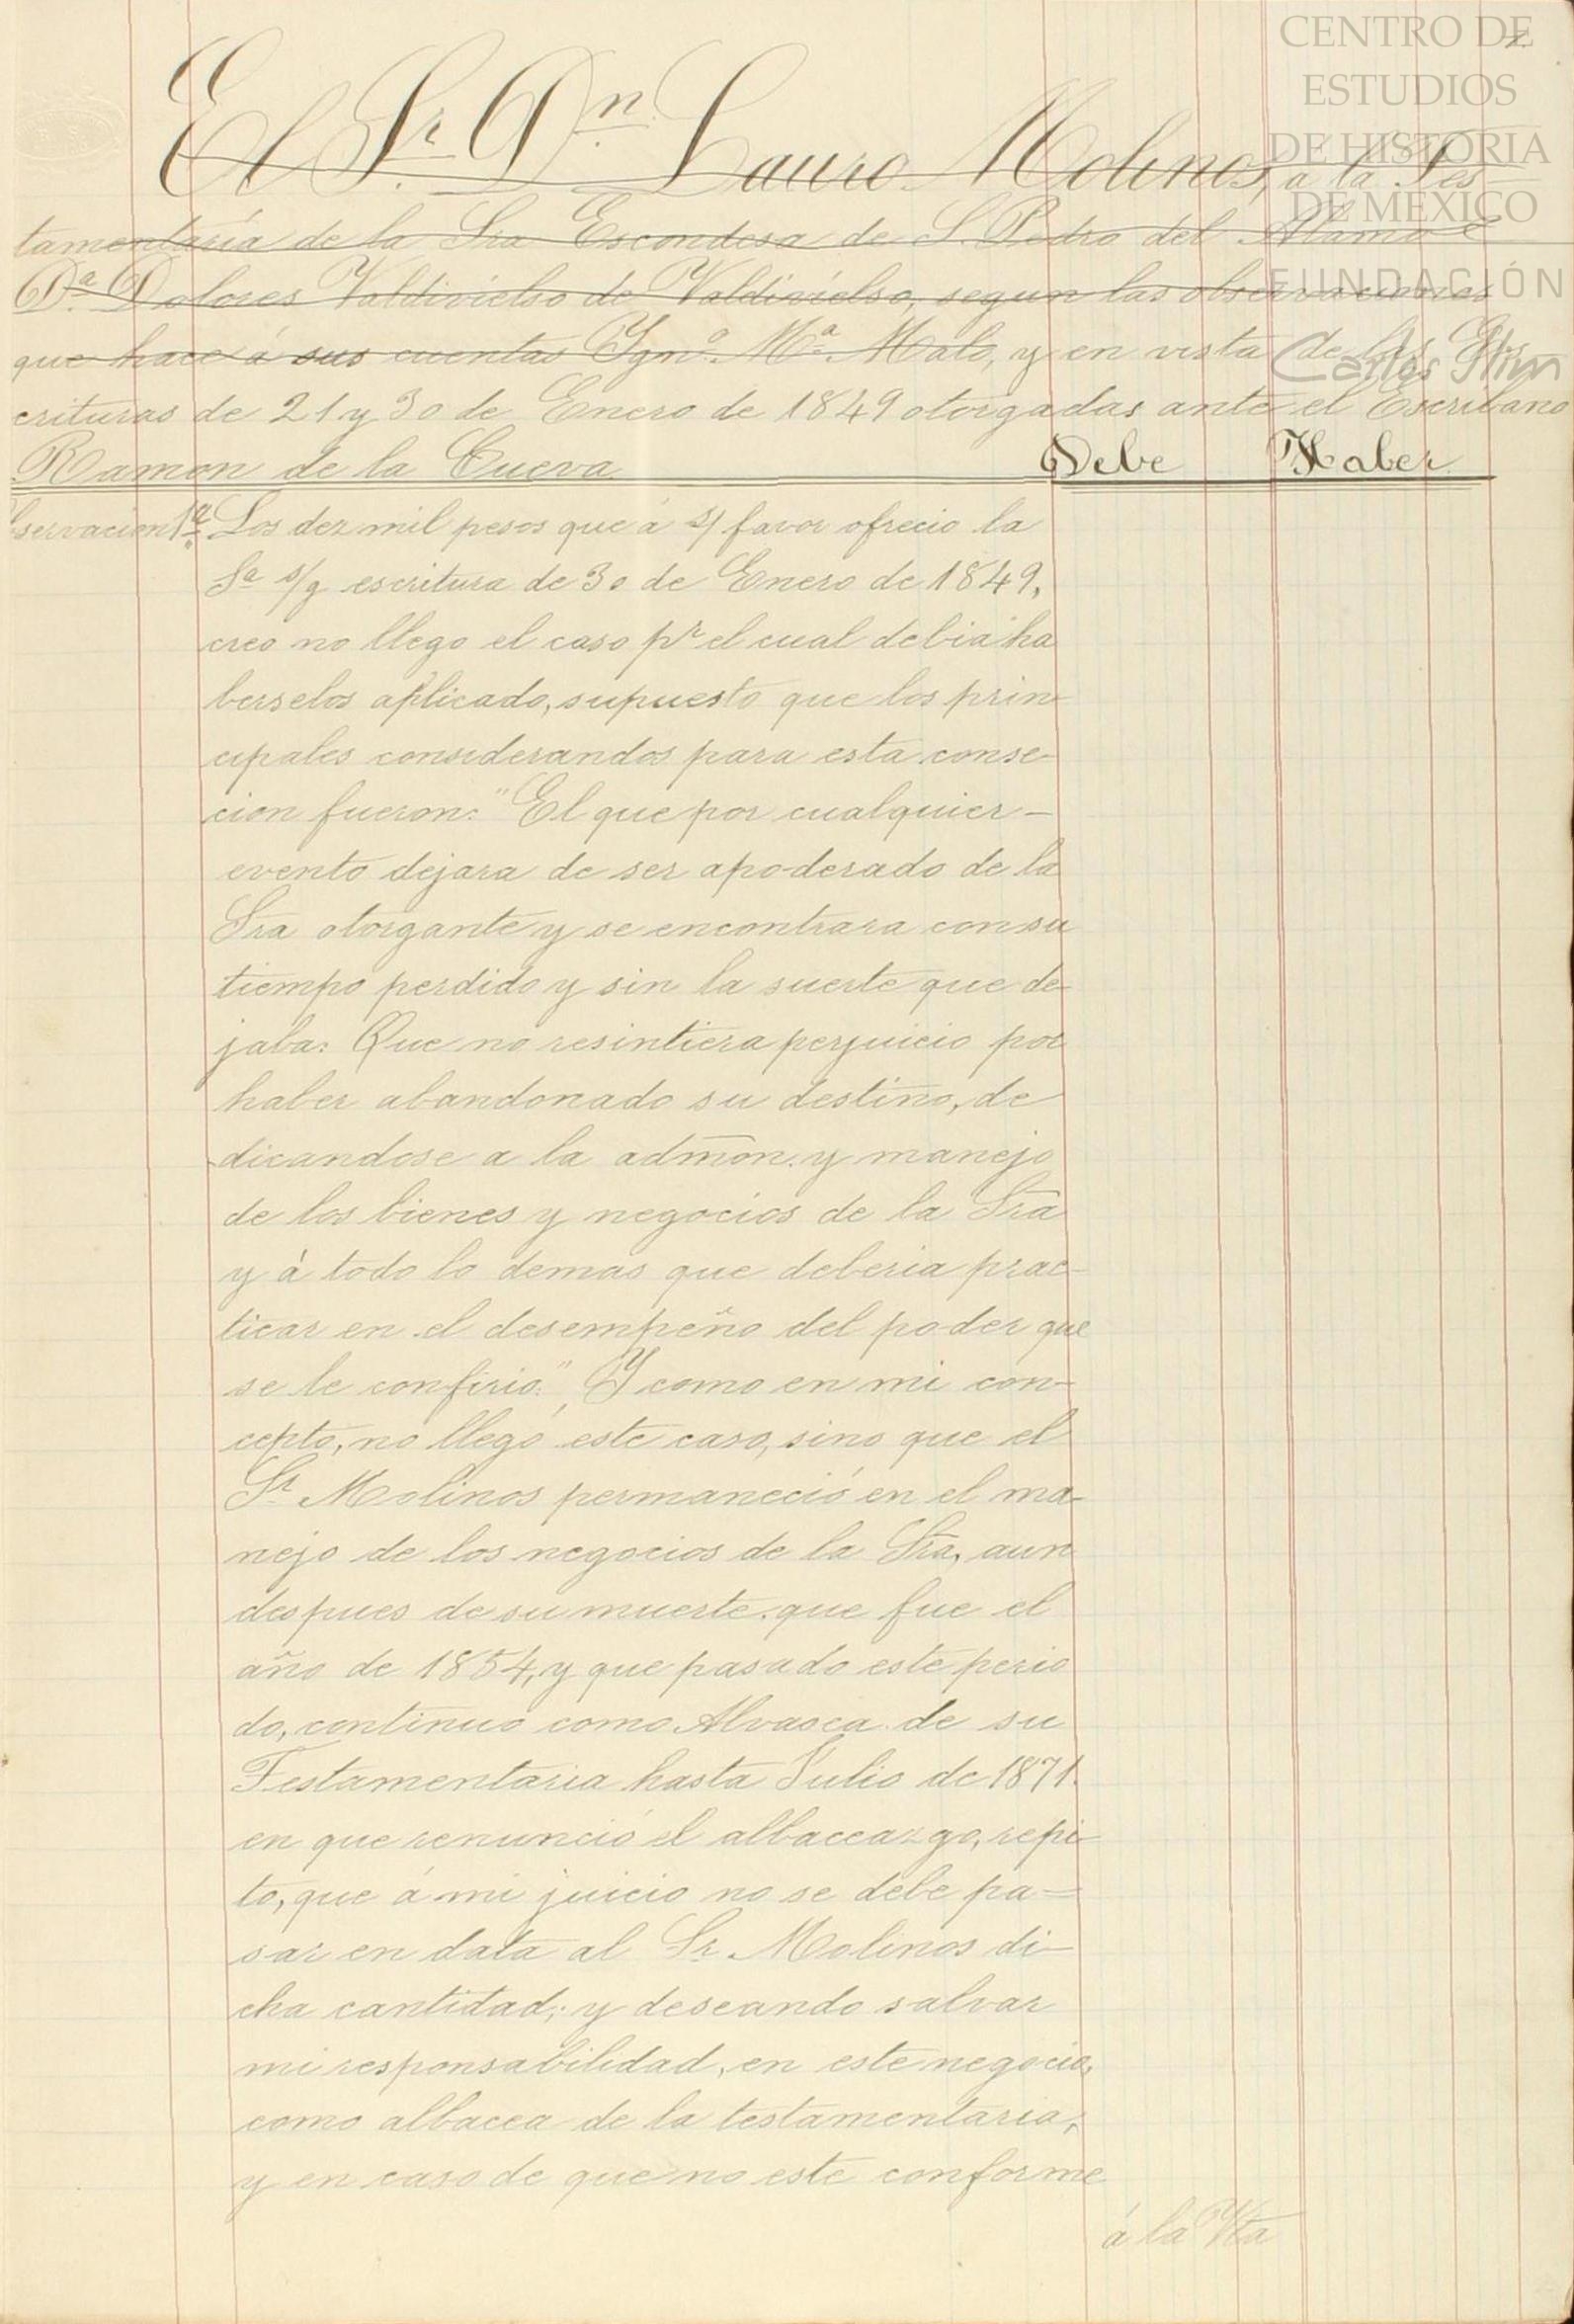 CENTRO DE
ESTUDIOS
DE HISTORIA
DE MÉXICO
FUNDACIÓN
Carlos Slim
El Sr. Dn. Lauro Molinos, a la Tes
tamentaría de la Sra Escondesa de S. Pedro del Alamo
Da. Dolores Valdivielso de Valdivielso, segun las observaciones
que hace á sus cuentas Ygno. Ma. Malo, y en vista de las Es
crituras de 21 y 30 de Enero de 1849 otorgadas ante el Escribano
Ramon de la Cueva
Debe Haber
Observacion 1a. Los dez mil pesos que á s/ favor ofrecio la
Sa s/g escritura de 30 de Enero de 1849,
creo no llego el caso pr el cual debia ha
berselos aplicado, supuesto que los prin
cipales considerandos para esta conse-
cion fueron: "El que por cualquier-
evento dejara de ser apoderado de la
Sra otorgante y se encontrara con su
tiempo perdido y sin la suerte que de-
jaba: Que no resintiera perjuicio por
haber abandonado su destino, de
dicandose a la admon. y manejo
de los bienes y negocios de la Sra
y á todo lo demas que deberia prac-
ticar en el desempeño del poder que
se le confirio." Y como en mi con-
cepto, no llegó este caso, sino que el
Sr. Molinos permaneció en el ma-
nejo de los negocios de la Sra, aun
despues de su muerte que fue el
año de 1854, y que pasado este perio
do, continuo como Alvasea de su
Testamentaria hasta Julio de 1871.
en que renunció el albaceazgo, repi-
to, que á mi juicio no se debe pa=
sar en data al Sr. Molinos di-
cha cantidad; y deseando salvar
mi responsabilidad, en este negocio,
como albacea de la testamentaria,
y en caso de que no este conforme
á la Vta